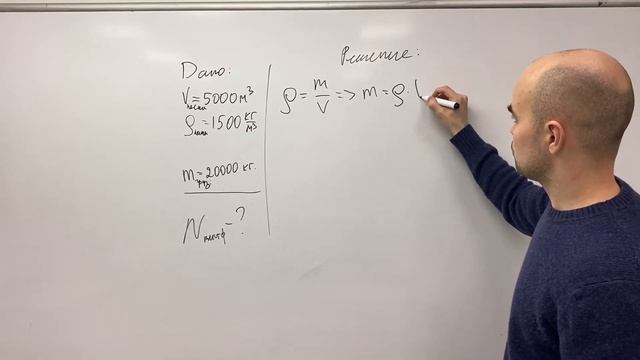 Дано:
V песка = 5000 м³
ρ песка = 1500 кг/м³
m груз = 20000 кг.
N платф - ?
Решение:
ρ = m/V => m = ρ ·